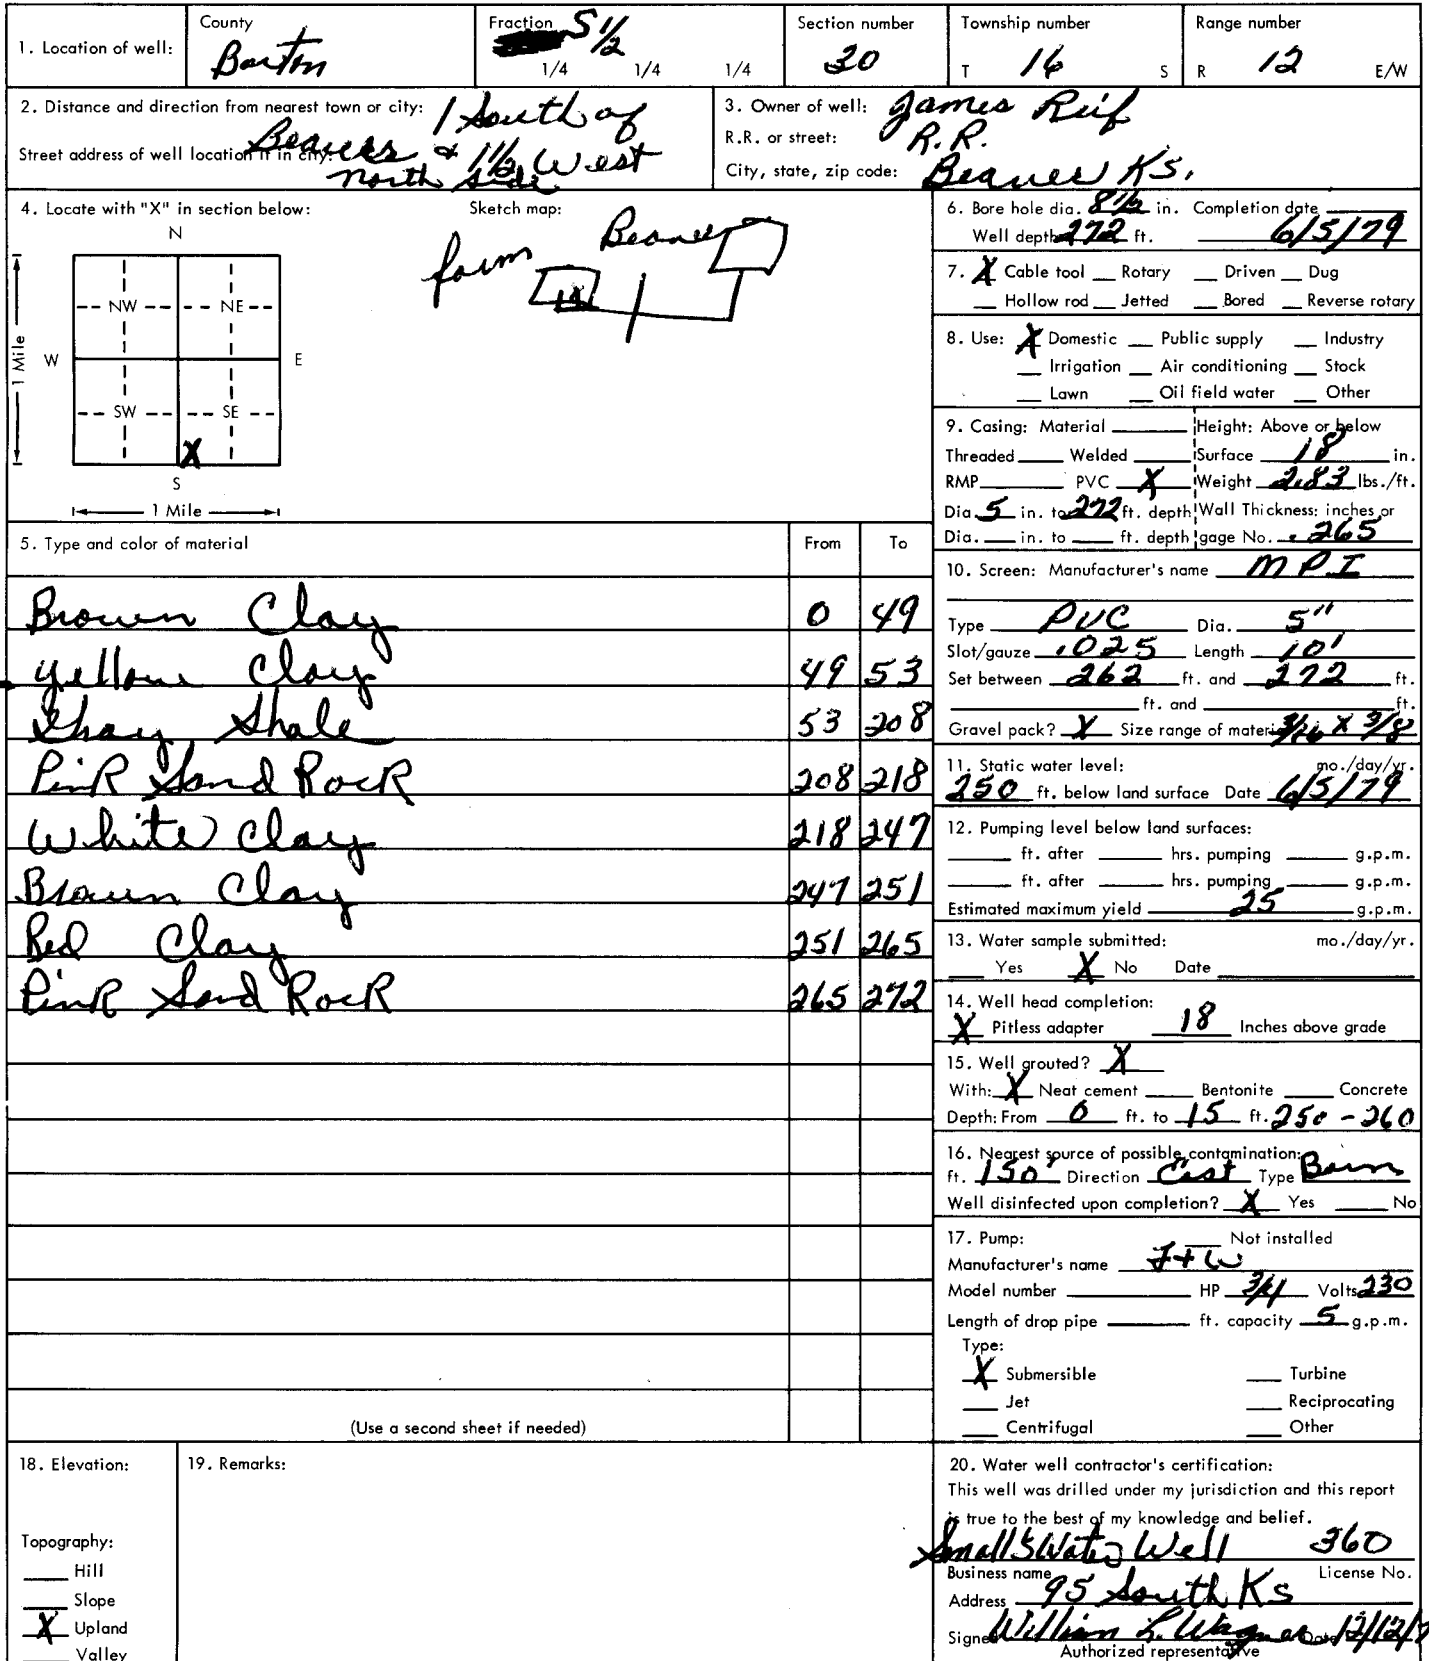 1. Location of well: County Barton Fraction S 1/2 1/4 1/4 1/4 Section number 30 Township number T 16 S Range number R 12 E/W
2. Distance and direction from nearest town or city: 1 South of
Street address of well location if in city: Beaver & 1 1/2 West
North Side
3. Owner of well: James Reif
R.R. or street: R.R.
City, state, zip code: Beaver Ks.
4. Locate with "X" in section below: Sketch map:
N
farm Beaver
NW NE
1 Mile W E
SW SE
X
S
1 Mile
5. Type and color of material From To
Brown Clay 0 49
Yellow Clay 49 53
Gray Shale 53 208
Pink Sand Rock 208 218
White Clay 218 247
Brown Clay 247 251
Red Clay 251 265
Pink Sand Rock 265 272
(Use a second sheet if needed)
6. Bore hole dia. 8 1/2 in. Completion date
Well depth 272 ft. 6/5/79
7. X Cable tool Rotary Driven Dug
Hollow rod Jetted Bored Reverse rotary
8. Use: X Domestic Public supply Industry
Irrigation Air conditioning Stock
Lawn Oil field water Other
9. Casing: Material Height: Above or below
Threaded Welded Surface 18 in.
RMP PVC X Weight 2.83 lbs./ft.
Dia. 5 in. to 272 ft. depth Wall Thickness: inches or
Dia. in. to ft. depth gage No. .265
10. Screen: Manufacturer's name MPI
Type PVC Dia. 5"
Slot/gauze .025 Length 10'
Set between 262 ft. and 272 ft.
ft. and ft.
Gravel pack? X Size range of material 3/16 x 3/8
11. Static water level: mo./day/yr.
250 ft. below land surface Date 6/5/79
12. Pumping level below land surfaces:
ft. after hrs. pumping g.p.m.
ft. after hrs. pumping g.p.m.
Estimated maximum yield 25 g.p.m.
13. Water sample submitted: mo./day/yr.
Yes X No Date
14. Well head completion:
X Pitless adapter 18 Inches above grade
15. Well grouted? X
With: X Neat cement Bentonite Concrete
Depth: From 0 ft. to 15 ft. 250 - 260
16. Nearest source of possible contamination:
ft. 150' Direction East Type Barn
Well disinfected upon completion? X Yes No
17. Pump: Not installed
Manufacturer's name F+W
Model number HP 3/4 Volts 230
Length of drop pipe ft. capacity 5 g.p.m.
Type:
X Submersible Turbine
Jet Reciprocating
Centrifugal Other
18. Elevation:
Topography:
Hill
Slope
X Upland
Valley
19. Remarks:
20. Water well contractor's certification:
This well was drilled under my jurisdiction and this report
is true to the best of my knowledge and belief.
Small's Water Well 360
Business name License No.
Address 95 South Ks
Signed William L. Wagner Date 12/12/7
Authorized representative